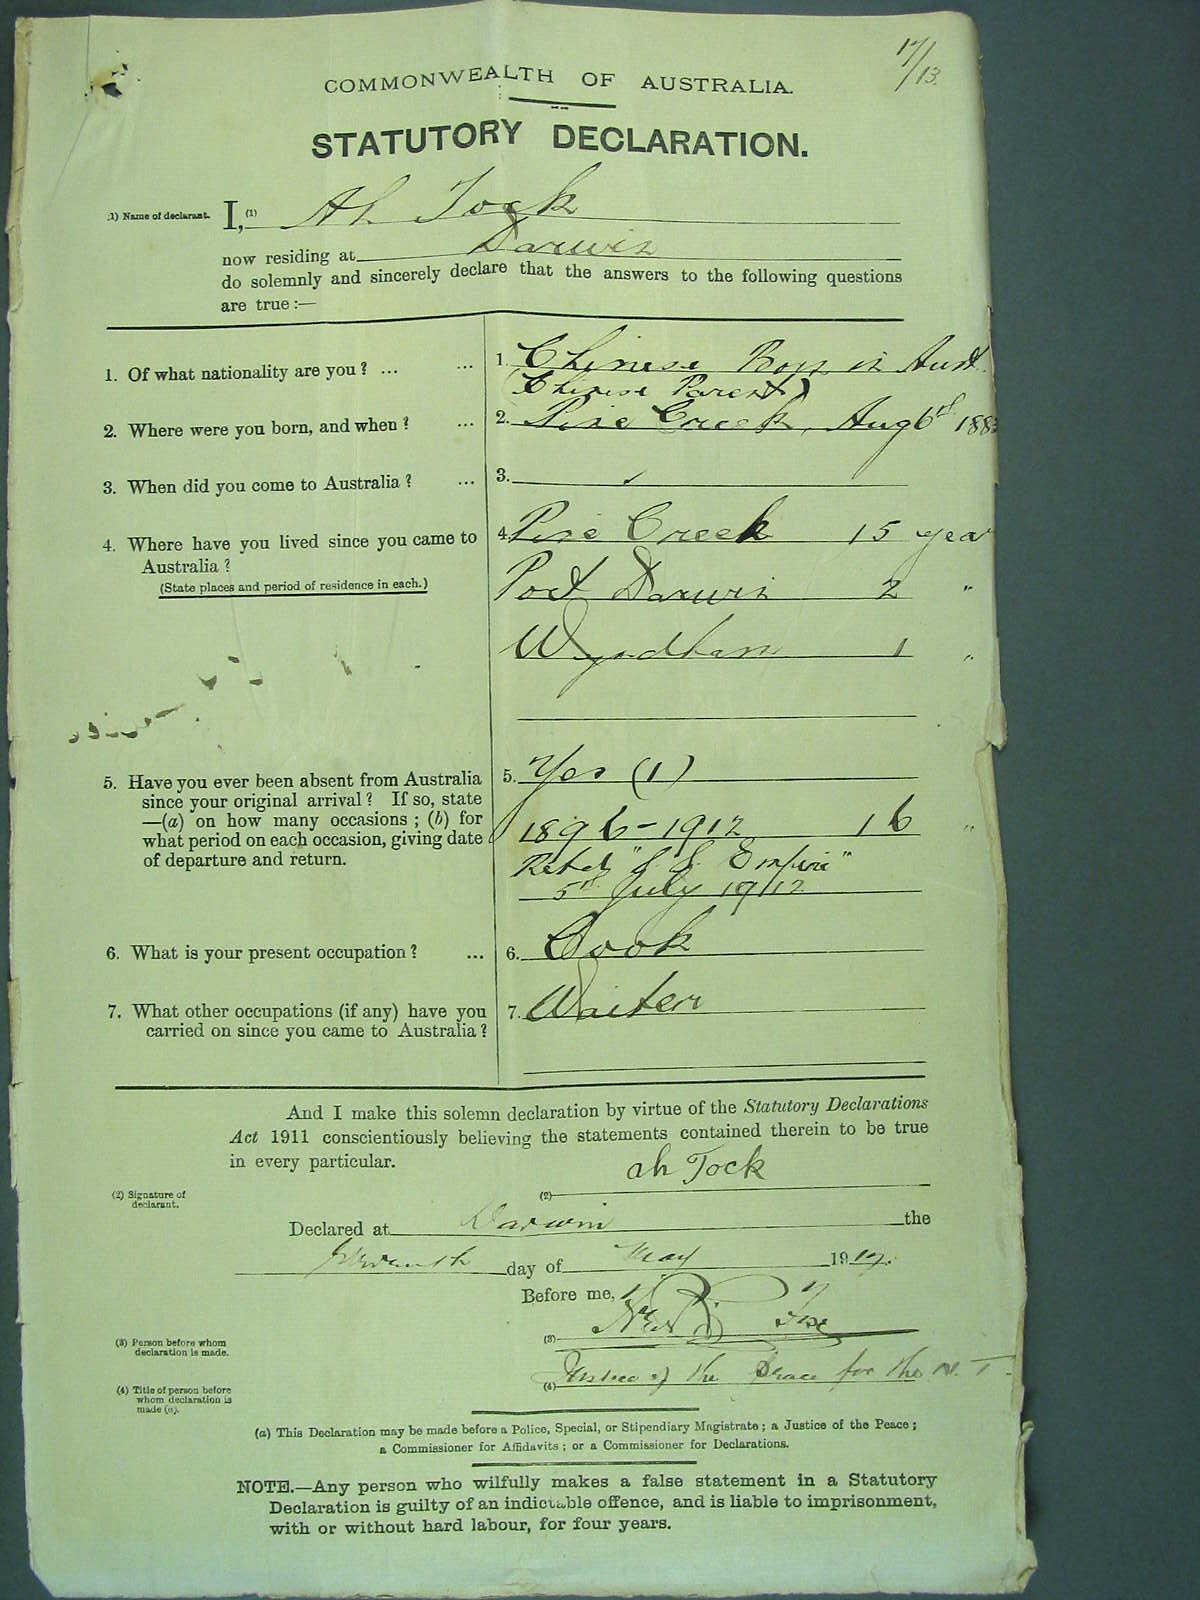 17/13.
COMMONWEALTH OF AUSTRALIA.
STATUTORY DECLARATION.
(1) Name of declarant. I, (1) Ah Tock
now residing at Darwin
do solemnly and sincerely declare that the answers to the following questions
are true :—
1. Of what nationality are you ? ... ... 1. Chinese Born in Aust.
(Chinese Parent)
2. Where were you born, and when ? ... 2. Pine Creek, Aug 6th 188
3. When did you come to Australia ? ... 3.
4. Where have you lived since you came to 4. Pine Creek 15 year
Australia ?
(State places and period of residence in each.) Port Darwin 2 "
Wyndham 1 "
5. Have you ever been absent from Australia 5. Yes (1)
since your original arrival ? If so, state
—(a) on how many occasions ; (b) for 1896 - 1912 16 "
what period on each occasion, giving date Retd "S. S. Empire"
of departure and return. 5th July 1912
6. What is your present occupation ? ... 6. Cook
7. What other occupations (if any) have you 7. Waiter
carried on since you came to Australia ?
And I make this solemn declaration by virtue of the Statutory Declarations
Act 1911 conscientiously believing the statements contained therein to be true
in every particular.
(2) Signature of declarant. (2) ah Tock
Declared at Darwin the
day of May 1917.
Before me,
(3) Person before whom declaration is made. (3)
(4) Title of person before whom declaration is made (a). (4) Justice of the Peace for the N. T.
(a) This Declaration may be made before a Police, Special, or Stipendiary Magistrate ; a Justice of the Peace ;
a Commissioner for Affidavits ; or a Commissioner for Declarations.
NOTE.—Any person who wilfully makes a false statement in a Statutory
Declaration is guilty of an indictable offence, and is liable to imprisonment,
with or without hard labour, for four years.